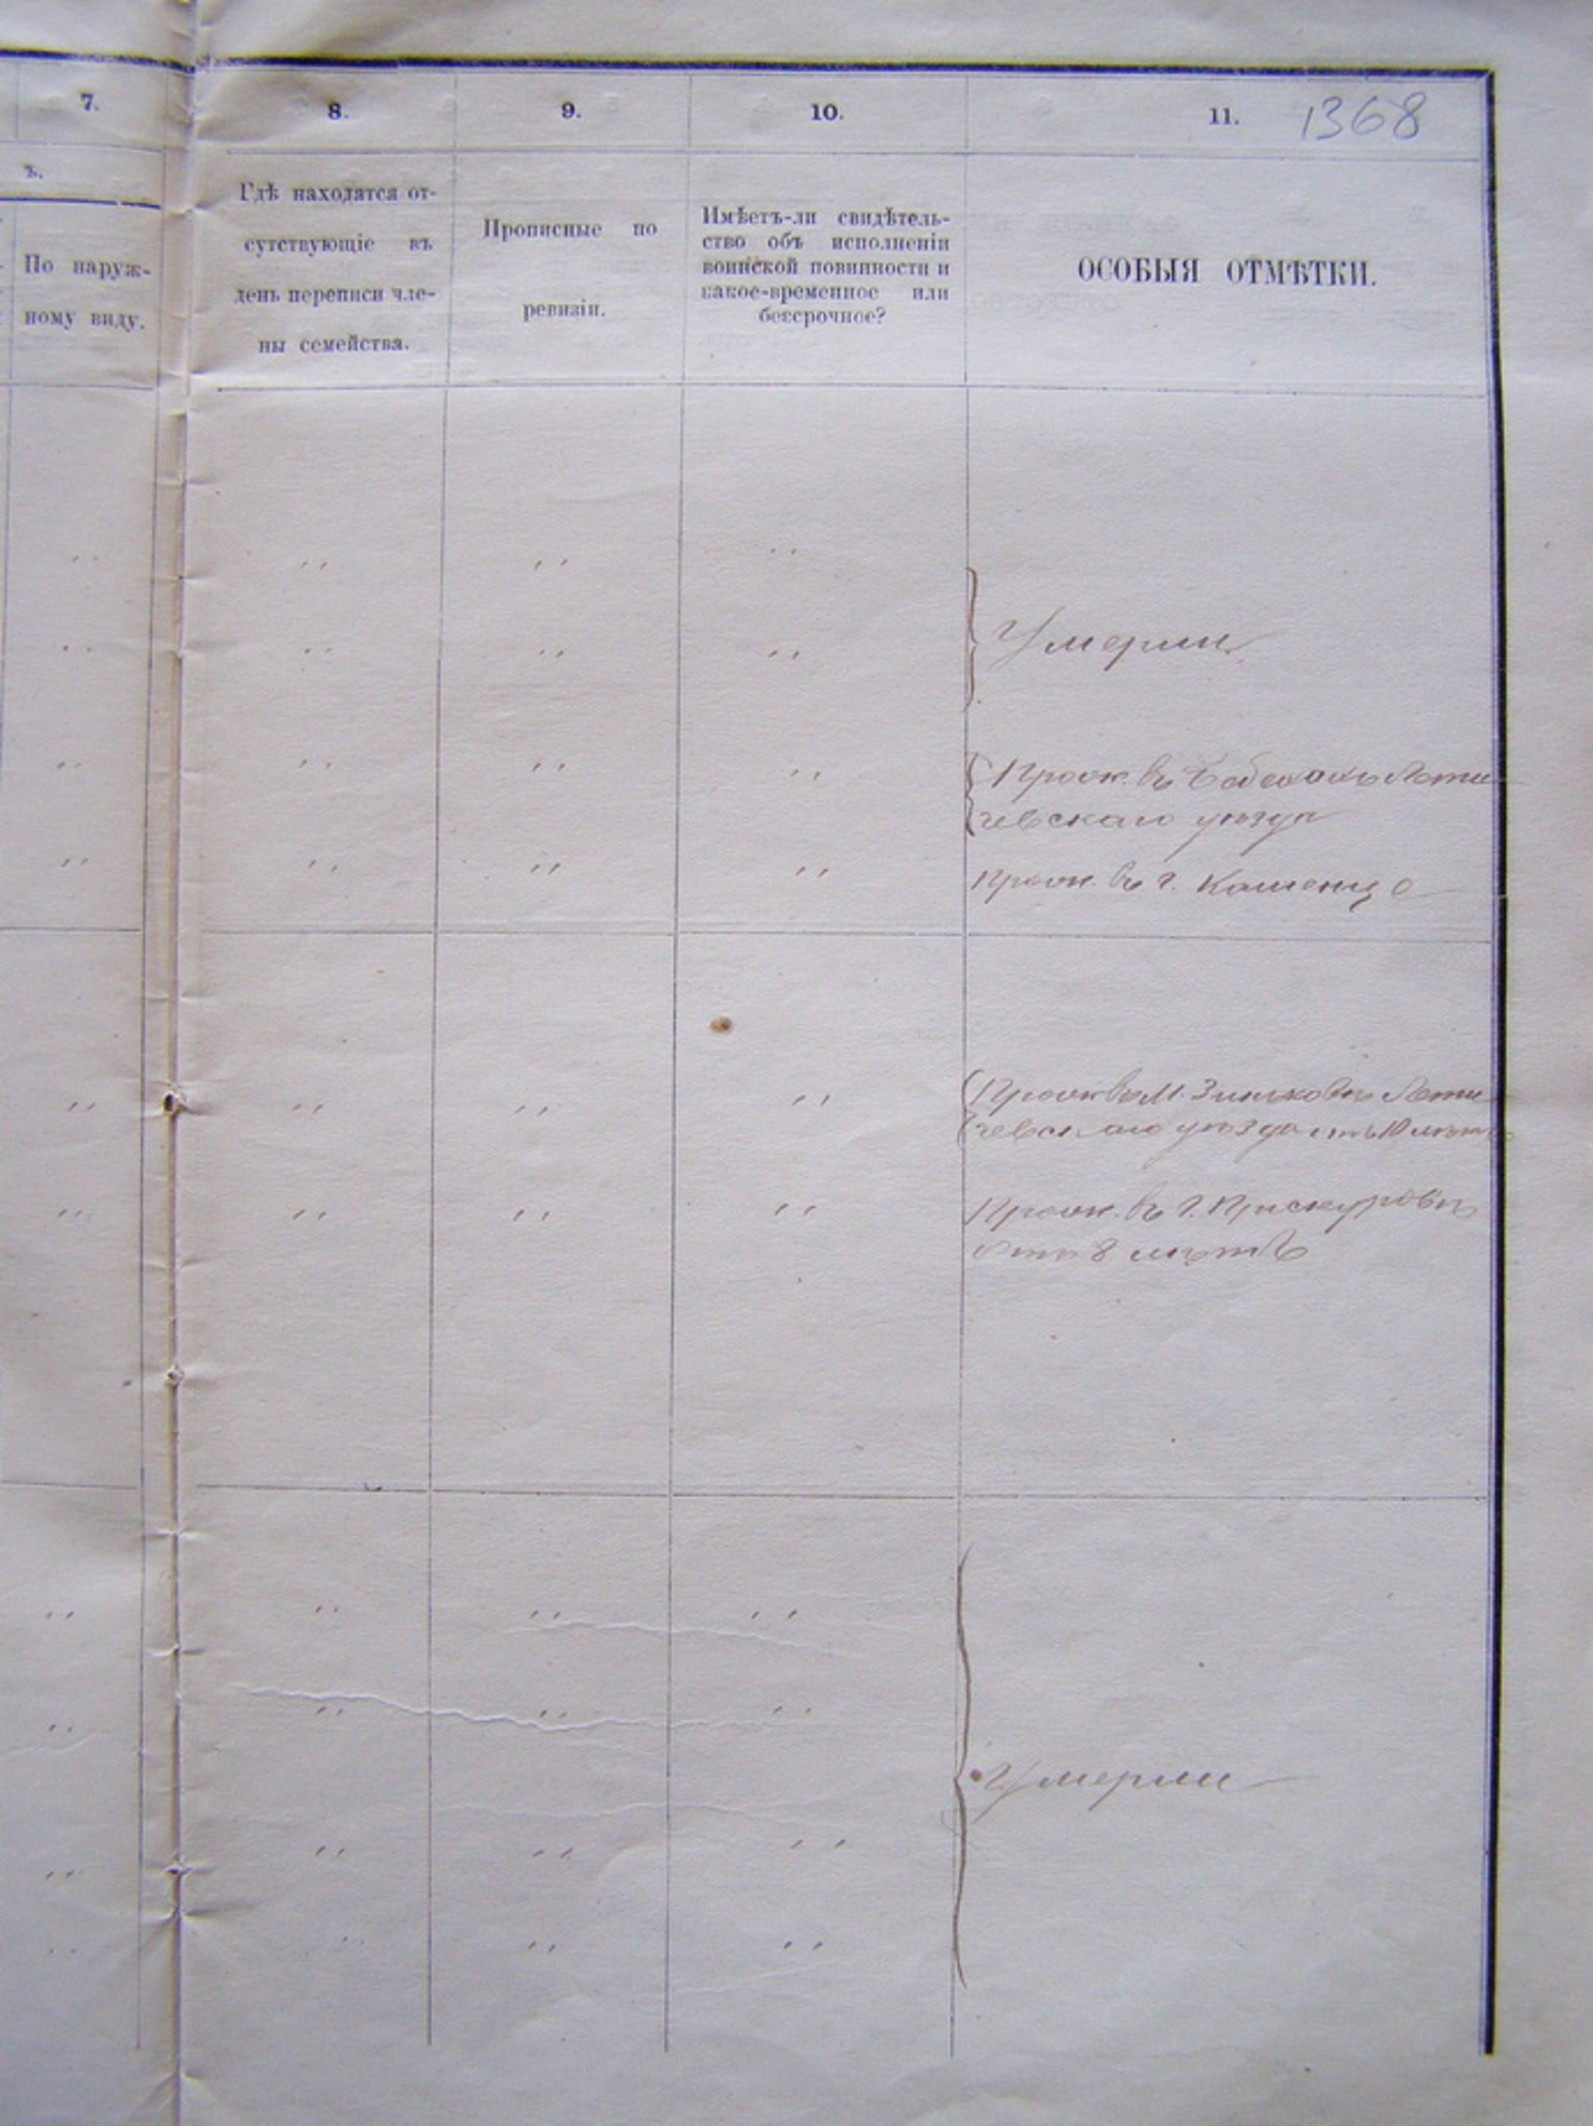 7.
8.
9.
10.
11.
1368
ъ.
По наруж-
ному виду.
Гдѣ находятся от-
сутствующіе въ
день переписи чле-
ны семейства.
Прописные по
ревизіи.
Имѣетъ-ли свидѣтель-
ство объ исполненіи
воинской повинности и
какое-временное или
безсрочное?
ОСОБЫЯ ОТМѢТКИ.
Умерли.
Прож. въ Лети
чевскаго уѣзда
прож. въ г. Каменцѣ
Прож въ М. Зиньковѣ Лети
чевскаго уѣзда отъ 10 лѣтъ
Прож. въ г. Проскуровѣ
отъ 8 лѣтъ
Умерли